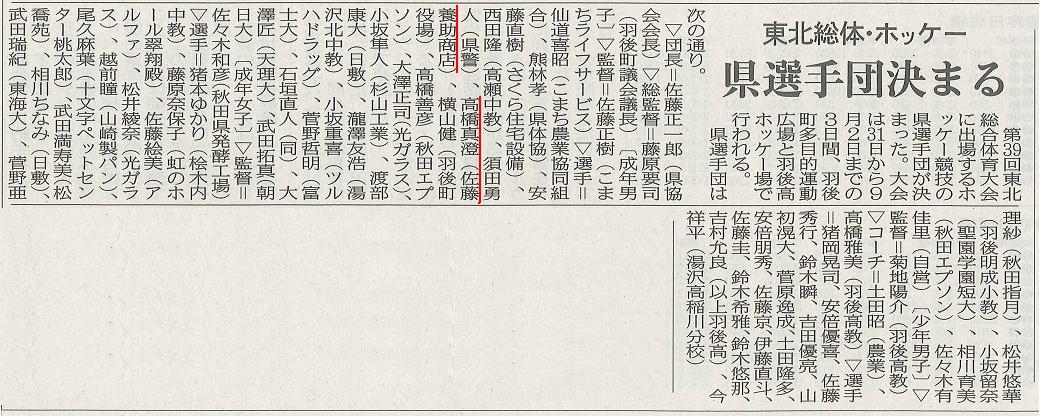 東北総体・ホッケー
県選手団決まる
　第39回東北
総合体育大会
に出場するホ
ッケー競技の
県選手団が決
まった。大会
は31日から9
月2日までの
3日間、羽後
町多目的運動
広場と羽後高
ホッケー場で
行われる。
　県選手団は
次の通り。
▽団長＝佐藤正一郎（県協
会会長）▽総監督＝藤原要司
（羽後町議会議長）〔成年男
子〕▽監督＝佐藤正樹（こま
ちライフサービス）▽選手＝
仙道喜昭（こまち農業協同組
合）、熊林孝（県体協）、安
藤直樹（さくら住宅設備）、
西田隆（高瀬中教）、須田勇
人（県警）、高橋真澄（佐藤
養助商店）、横山健（羽後町
役場）、高橋善彦（秋田エプ
ソン）、大澤正司（光ガラス）、
小坂隼人（杉山工業）、渡部
康大（日敷）、瀧澤友浩（湯
沢北中教）、小坂重喜（ツル
ハドラッグ）、菅野哲明（富
士大）、石垣直人（同）、大
澤匠（天理大）、武田拓真（朝
日大）〔成年女子〕▽監督＝
佐々木和彦（秋田県発酵工場）
▽選手＝猪本ゆかり（桧木内
中教）、藤原奈保子（虹のホ
ール翠翔殿）、佐藤絵美（ア
ルファ）、松井綾奈（光ガラ
ス）、越前瞳（山崎製パン）、
尾久麻葉（十文字ペットセン
ター桃太郎）、武田満寿美（松
喬苑）、相川ちなみ（日敷）、
武田瑞紀（東海大）、菅野亜
理紗（秋田指月）、松井悠華
（羽後明成小教）、小坂留奈
（聖園学園短大）、相川育美
（秋田エプソン）、佐々木有
佳里（自営）〔少年男子〕▽
監督＝菊地陽介（羽後高教）
▽コーチ＝土田昭（農業）、
高橋雅美（羽後高教）▽選手
＝猪岡晃司、安倍優喜、佐藤
秀行、鈴木瞬、吉田優亮、山
初滉大、菅原逸成、土田隆多、
安倍朋秀、佐藤京、伊藤直斗、
佐藤圭、鈴木希雅、鈴木悠那、
吉村允良（以上羽後高）、今
祥平（湯沢高稲川分校）